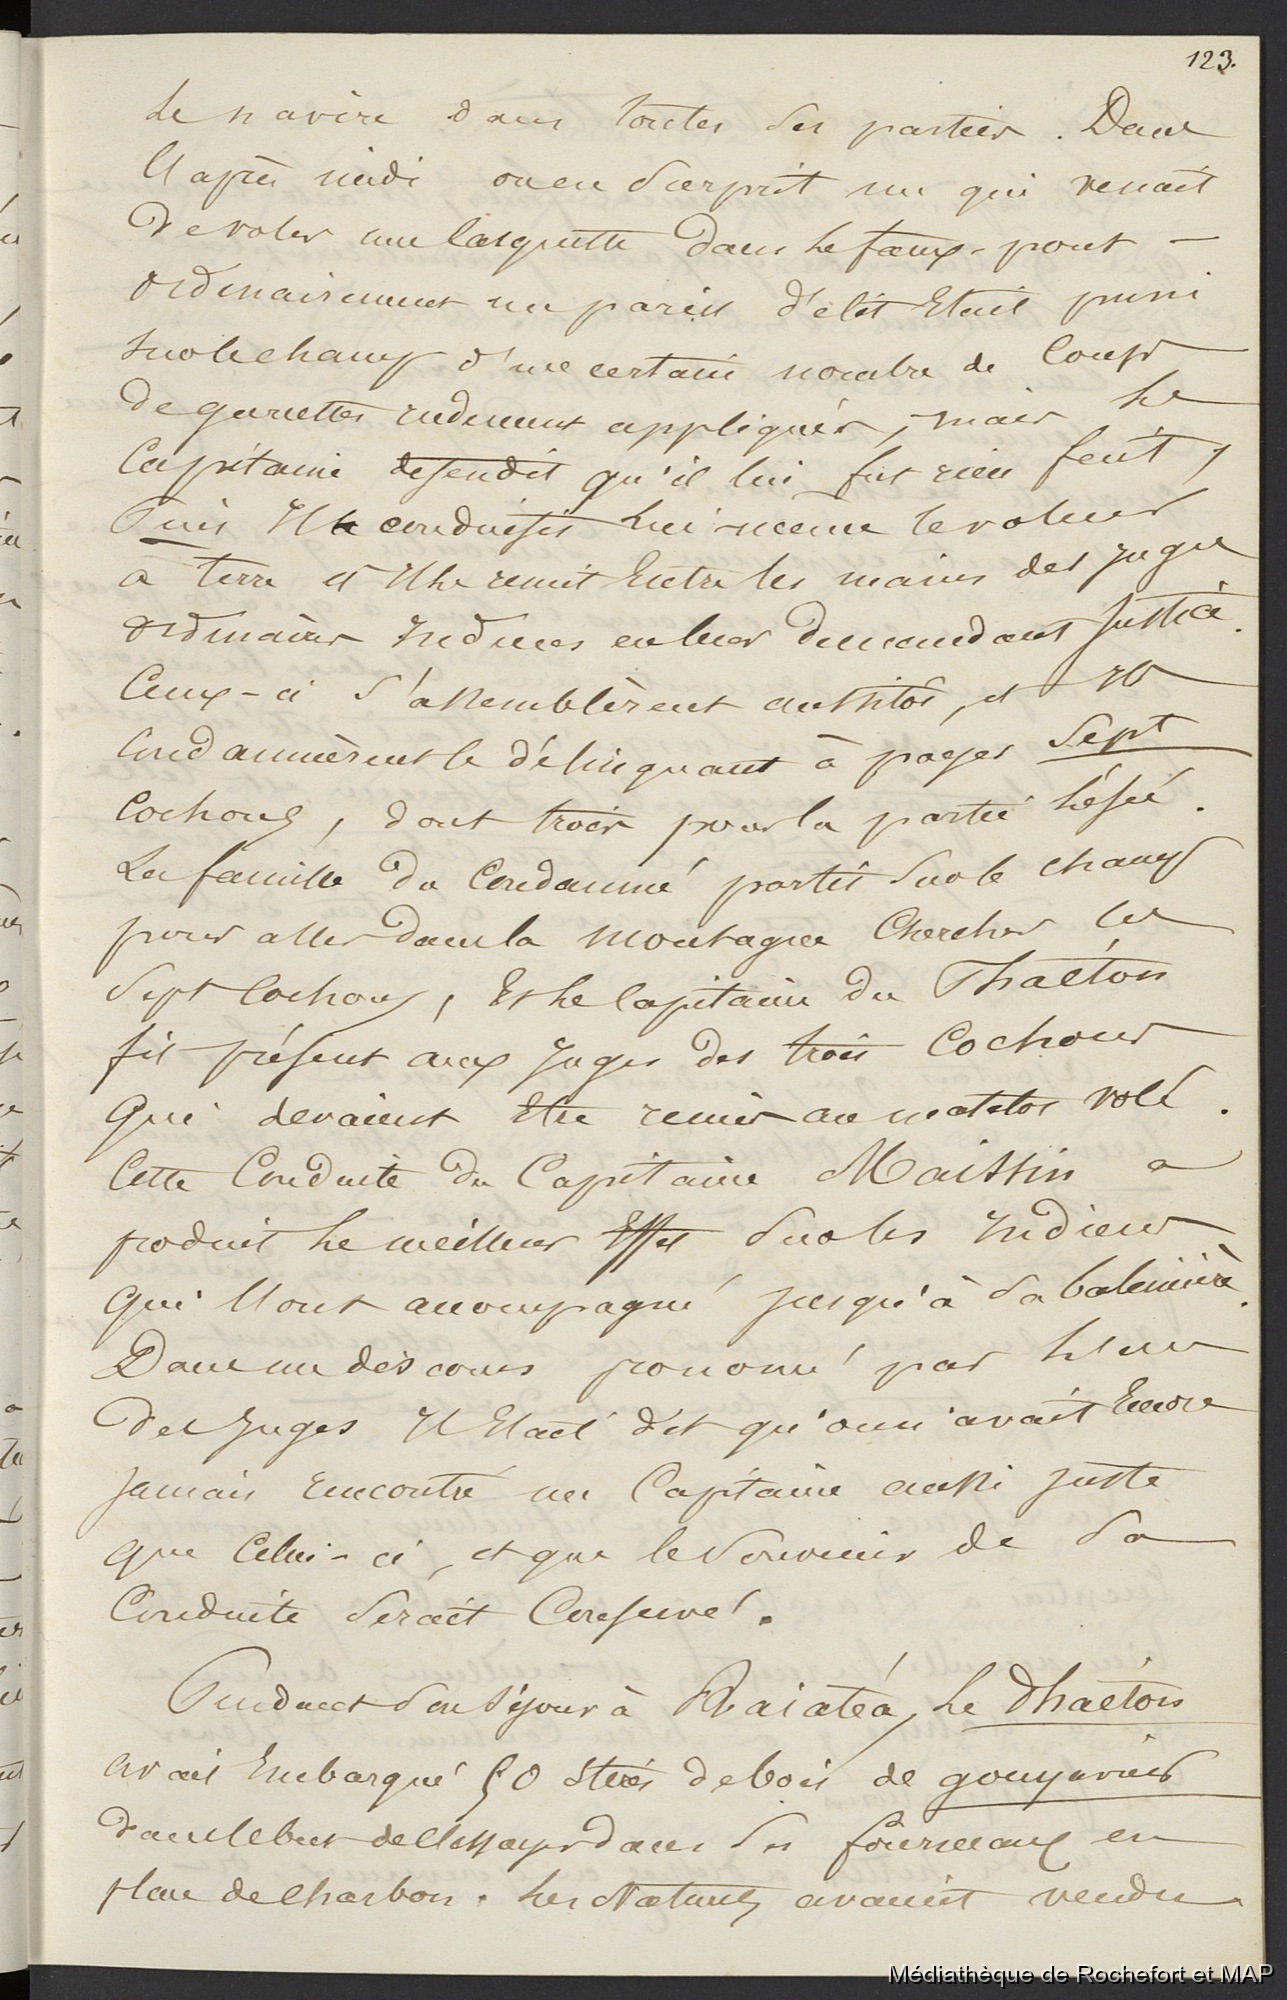 123.
le navire dans toutes ses parties. Dans
l'après midi on en surprit un qui venait
de voler une casquette dans le faux-pont –
ordinairement un pareil délit était puni
sur le champ d'un certain nombre de coups
de garcettes rudement appliqués, mais le
Capitaine défendit qu'il lui fut rien fait,
Puis Il conduisit lui-même le voleur
à terre et Il le remit entre les mains des juges
ordinaires Indiens en leur demandant justice.
Ceux-ci s'assemblèrent aussitôt, et Ils
condamnèrent le délinquant à payer sept
cochons, dont trois pour la partie lésée.
La famille du Condamné partit sur le champ
pour aller dans la montagne chercher les
sept cochons, Et le Capitaine du Phaéton
fit présent aux Juges des trois Cochons
qui devaient être remis au matelot volé.
Cette Conduite du Capitaine Maissin a
produit le meilleur Effet sur les Indiens
qui l'ont accompagné jusqu'à sa baleinière.
Dans un discours prononcé par l'un
des Juges Il était dit qu'on n'avait Encore
jamais rencontré un Capitaine aussi juste
que Celui-ci, et que le souvenir de sa
Conduite serait Conservé.
Pendant son séjour à Raiatéa, le Phaéton
avait Embarqué 50 stères de bois de gouyavier
dans le but de l'essayer dans ses fourneaux en
place de Charbon. Les Naturels avaient vendu
Médiathèque de Rochefort et MAP